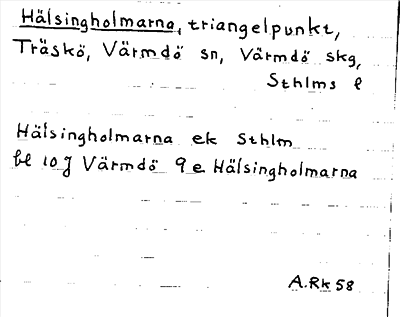 Hälsingholmarna, triangelpunkt,
Träskö, Värmdö sn, Värmdö skg,
Sthlms l
Hälsingholmarna ek Sthlm
bl 10 J Värmdö 9 e Hälsingholmarna
A.Rk 58